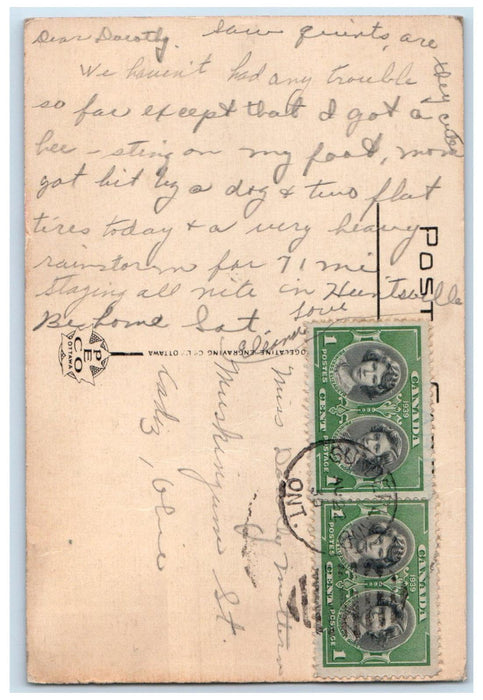 Dear Dorothy, Saw quints, are they cute
We haven't had any trouble
so far except that I got a
bee-sting on my foot, mom
got bit by a dog & two flat
tires today & a very heavy
rainstorm for 71 mi
staying all nite in Huntsville
Be home Sat.
Love
Eleanor
POST
PECO
OTTAWA
ENGRAVING CO. LTD. OTTAWA
Miss Dorothy
Muskingum St.
Cadiz, Ohio
CANADA
1939
1 CENT 1
POSTES POSTAGE
CANADA
1939
1 CENT 1
POSTES POSTAGE
ONT.